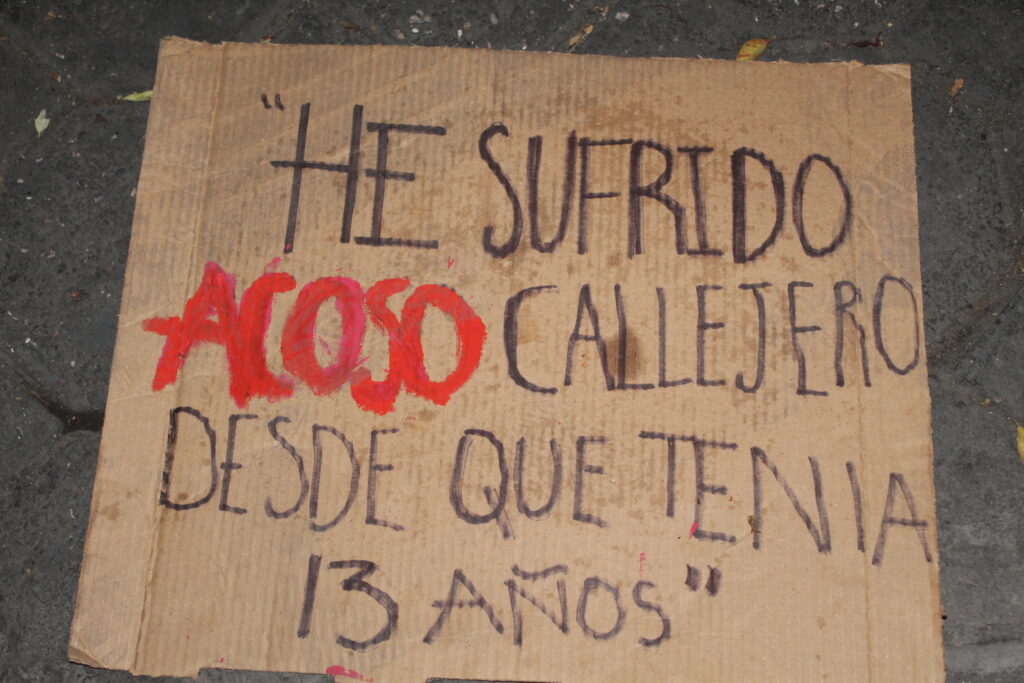 "HE SUFRIDO
ACOSO CALLEJERO
DESDE QUE TENIA
13 AÑOS"